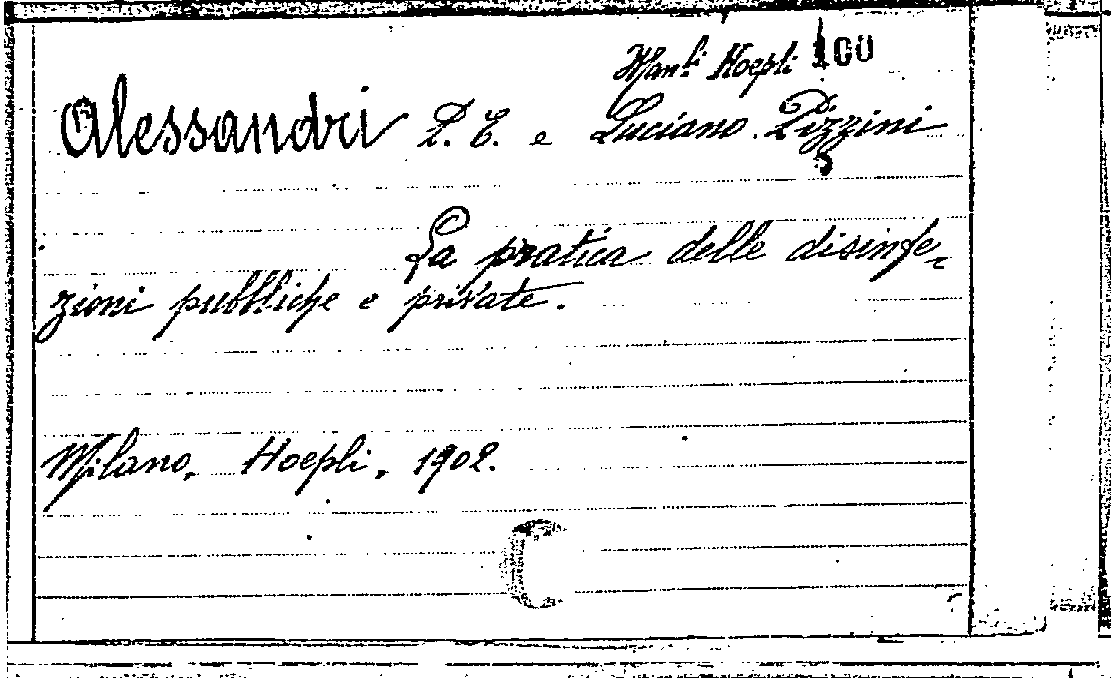 Man.li Hoepli 100
Alessandri P. E. e Luciano Pizzini
La pratica delle disinfe-
zioni pubbliche e private.
Milano, Hoepli, 1902.